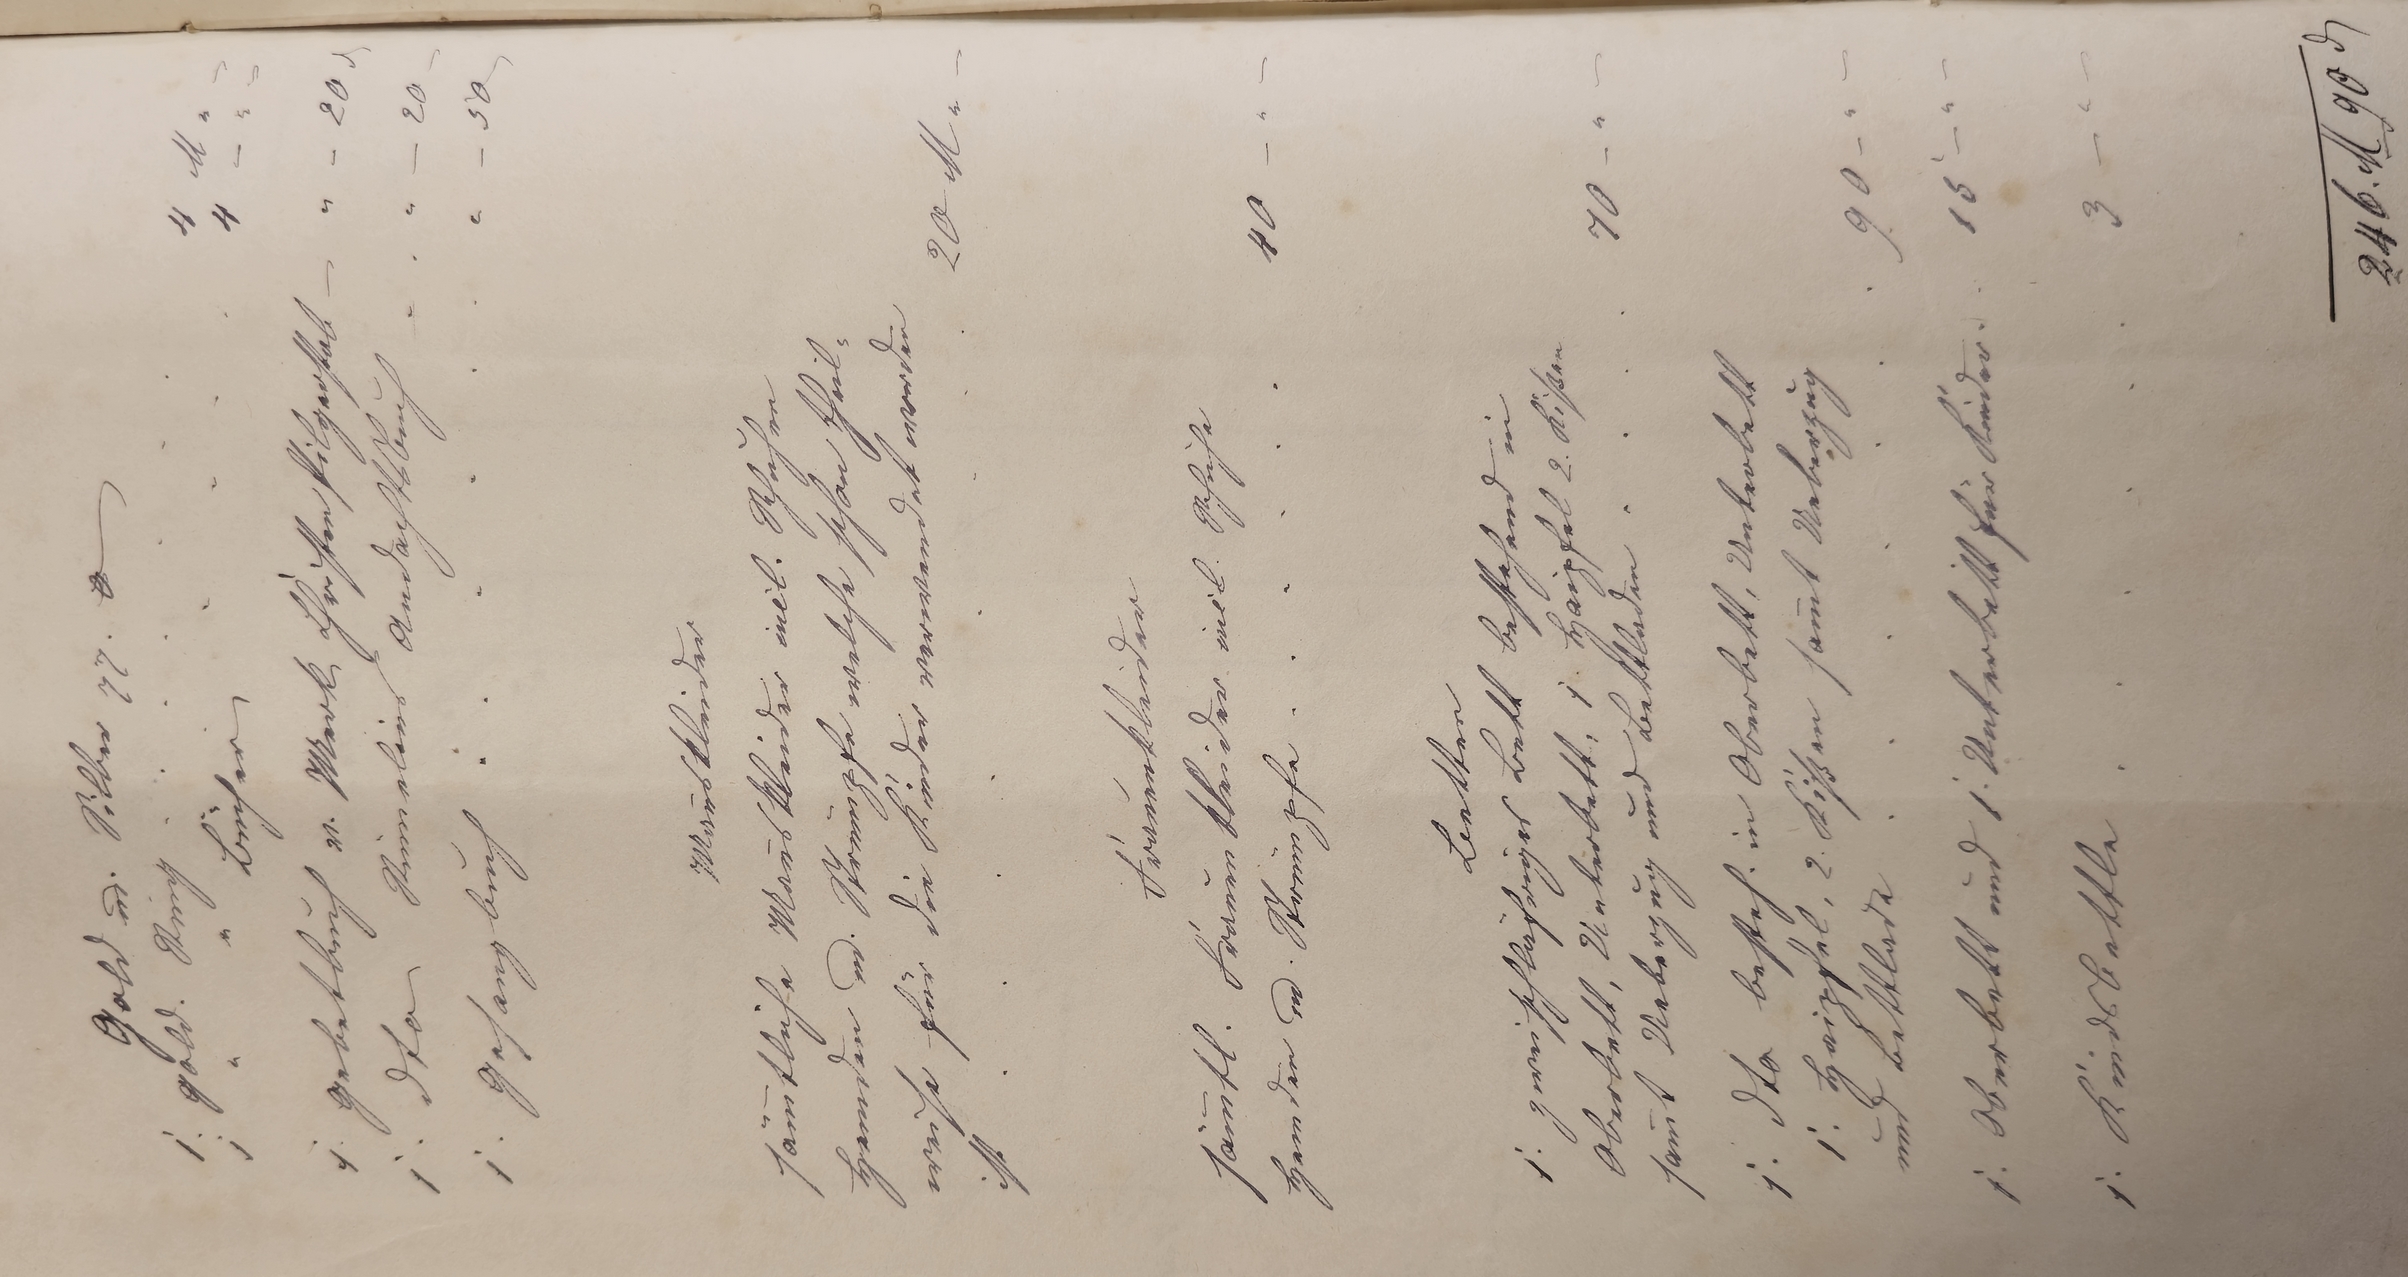 Gold u. Silber 77. 
1. gold. Ring . . . . . 4 M "
1 " " . . . . . 4 — "
Bücher
1. Gebetbuch v. Merk, Christenpilgerstab — " — 20 d
1. dto Andachtsbuch — . . " — 20
1. Gesangbuch . . . . . " — 50
Mannskleider
sämtliche Mannskleider incl. Schuhen
Hemden u. Strümpfe welche schon theil-
weise für die Kinder verwendet worden
ist . . . . . 20 M "
Frauenkleider
sämtl. Frauenkleider incl. Schuhe
Hemden u. Strümpfe . . . . . 40 — "
Betten
1. zweischläfriges Bett bestehend in
Oberbett, Unterbett, 1 Haipfel 2. Kißen
samt Ueberzug und Bettladen . . . . 70 — "
1. dto besteh. in Oberbett, Unterbett
1. Haipfel, 2. Kißen samt Ueberzug
und Bettlade . . . . . 90 — "
1. Oberbett und 1. Unterbett für Kinder . 15 — "
1. Kindsbettle . . . . . 3 — "
246. M 90 d